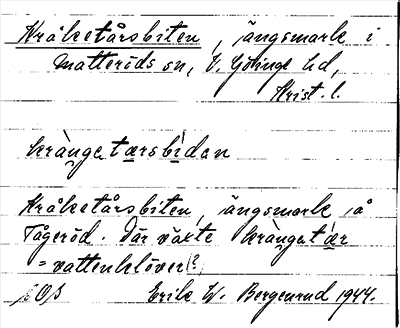 Kråketårsbiten, ängsmark i
Matteröds sn, V. Göinge hd,
Krist. l.
kràngatærsbìdan
Kråketårsbiten, ängsmark å
Tågeröd. Där växte kràngatær
= vattenklöver (?)
Erik W. Bergenrud 1944.